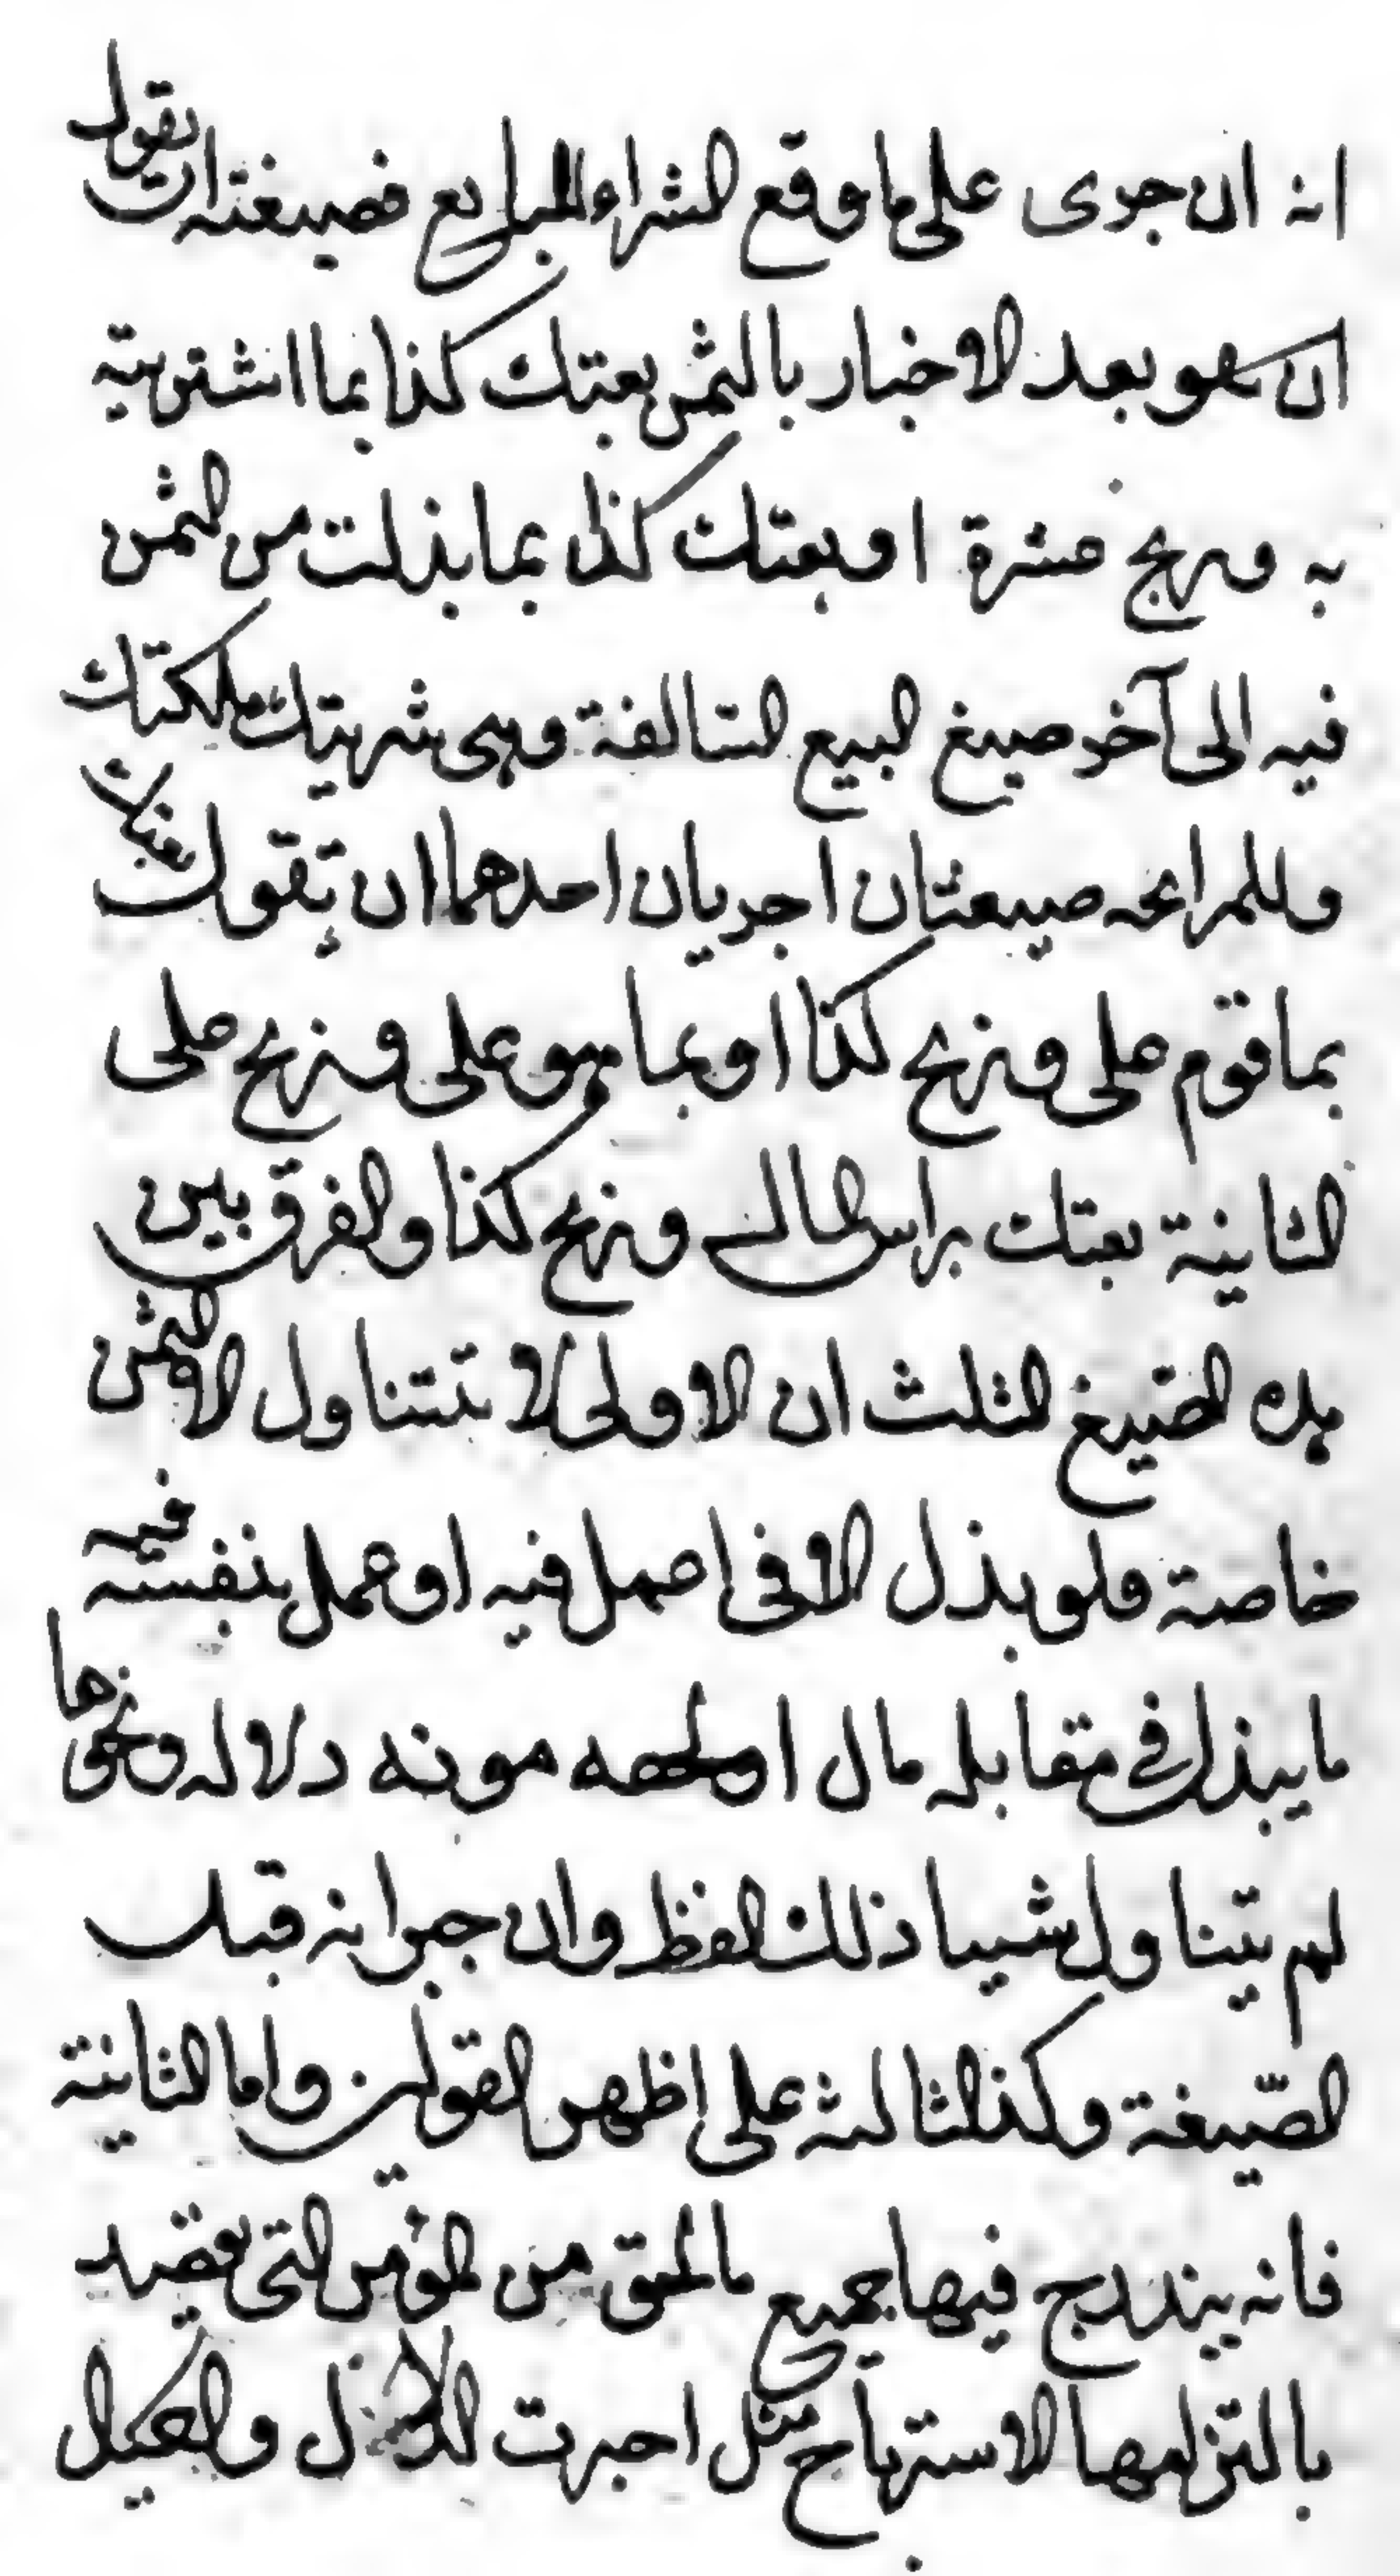 انه ان جرى على ما وقع الشراء البايع فصيغته ان يقول
ان هو بعد الاخبار بالثمن بعتك كذا بما اشتريته
به وربح عشرة او بعتك كذا بما بذلت من الثمن
فيه الى آخر صيغ البيع السالفة وهى شريتك ملكتك
وللمرابحه صيغتان اخريان احدهما ان تقول بعتك
بما قوم على وربح كذا او بما هو على وربح على
الثانية بعتك براس المال وربح كذا والفرق بين
هذه الصيغ الثلث ان الاولى لا تتناول الا الثمن
خاصة فلو بذل الا فى اعمل فيه او عمل بنفسه فيه
ما يبذل فى مقابله مال او مونه دلاله ونحوها
لم يتناول شيبا ذلك الفظ وان جبرانه قبل
الصّيغة وكذا الثالثه على اظهر القولين واما الثانية
فانه يندرج فيها جميع ما لحق من المؤمن التى يقصد
بالتزامها الاسترباح مثل اجرت والكيال